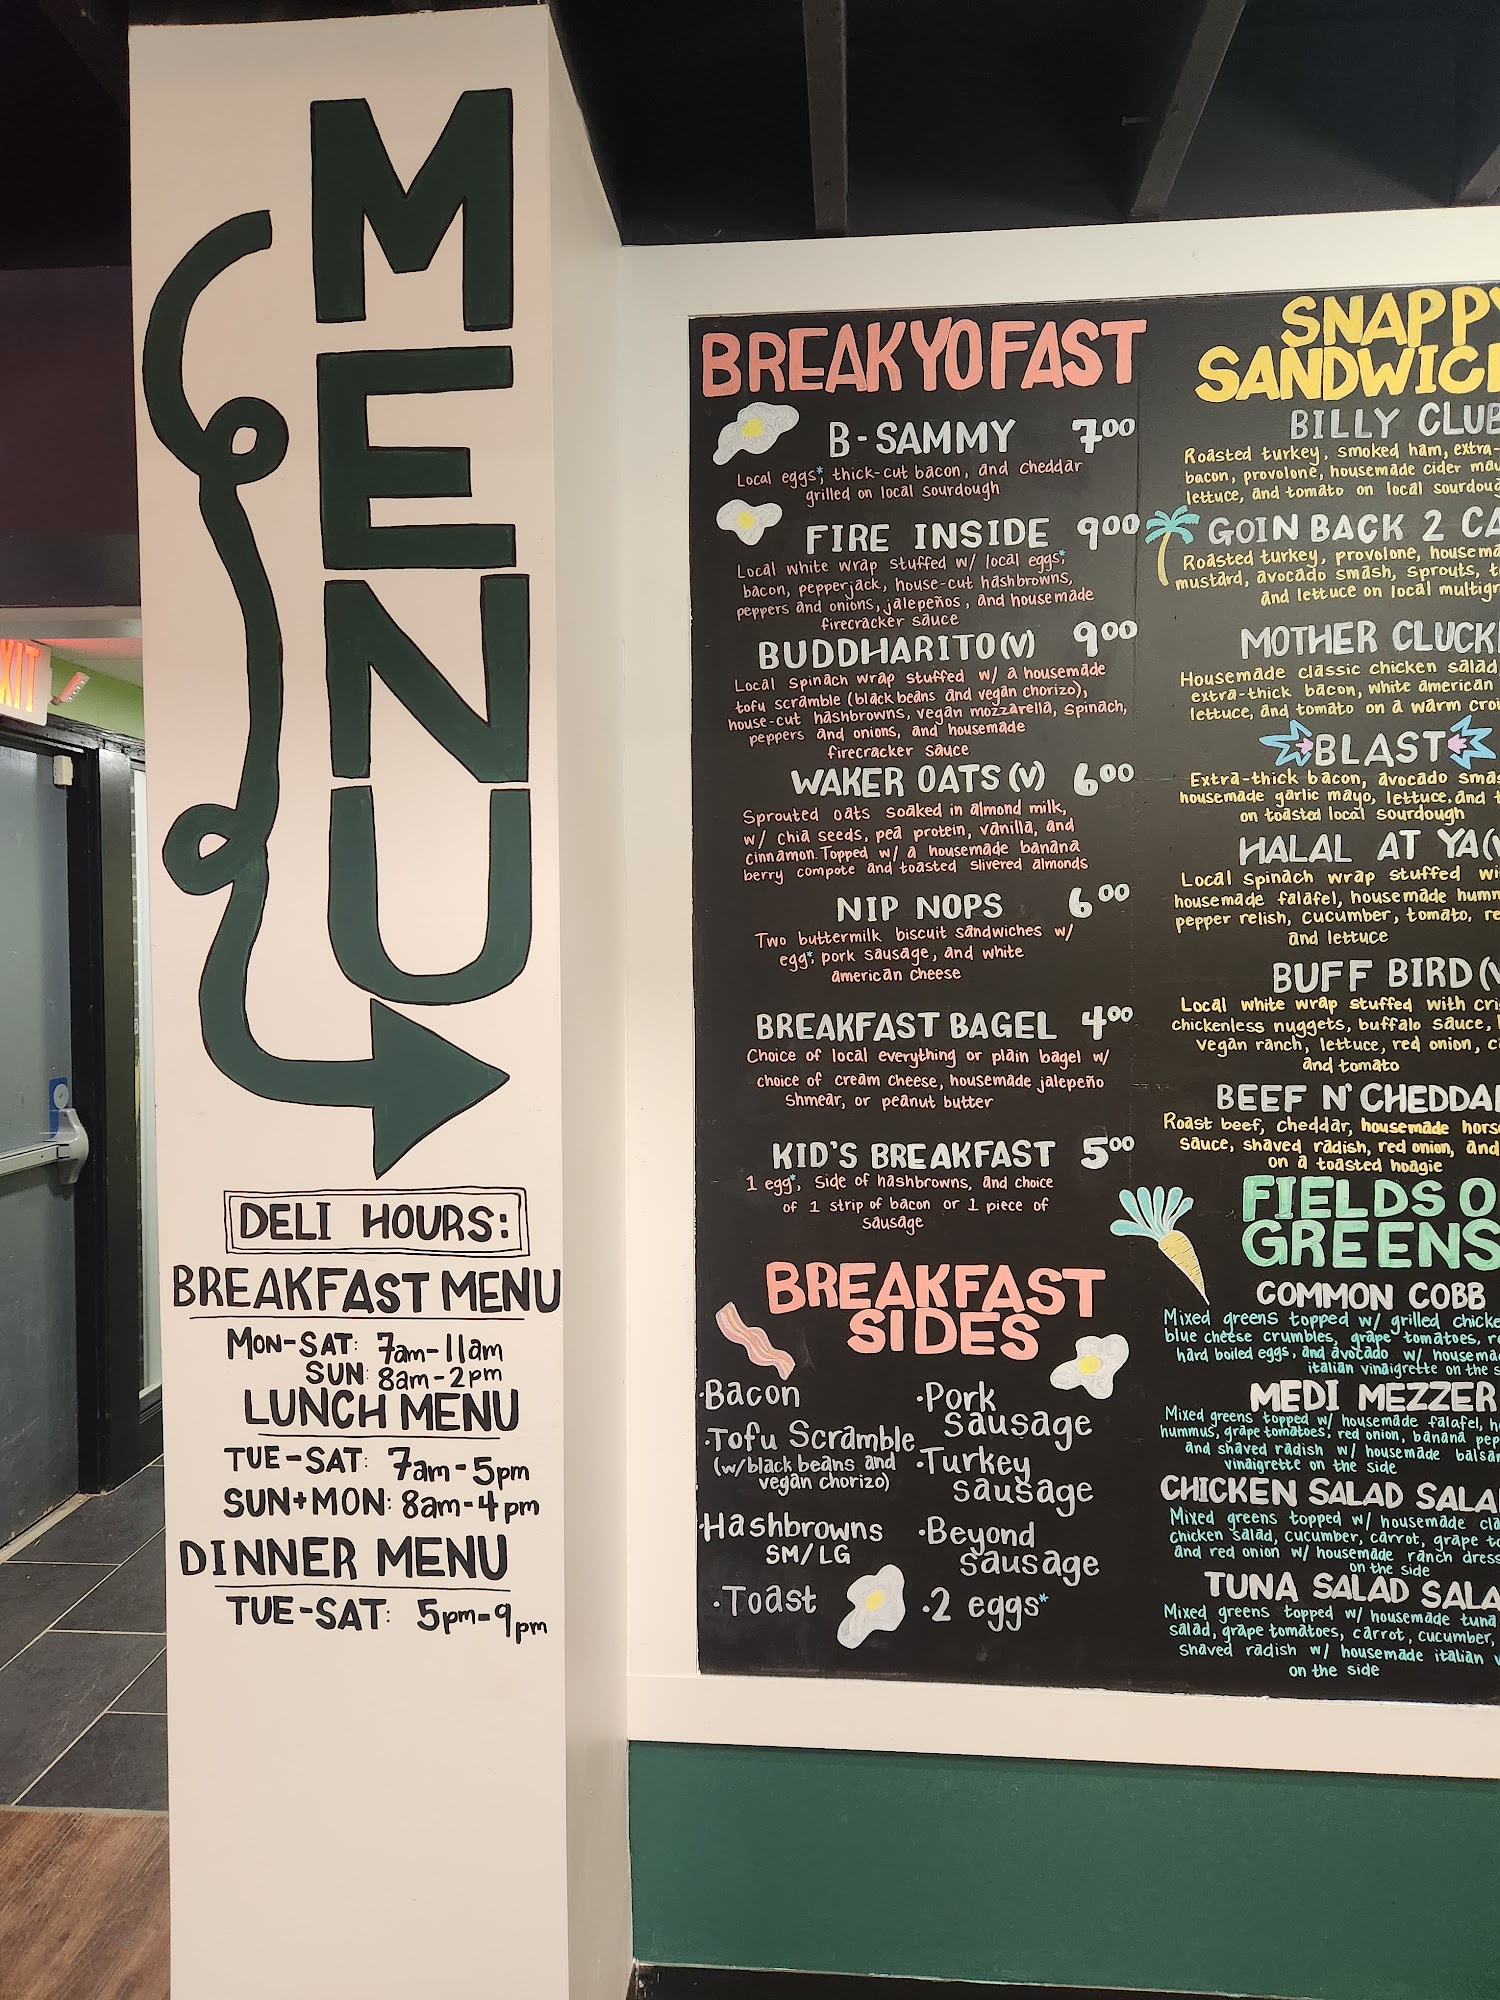 MENU
DELI HOURS:
BREAKFAST MENU
MON-SAT: 7am-11am
SUN: 8am-2pm
LUNCH MENU
TUE-SAT: 7am-5pm
SUN+MON: 8am-4pm
DINNER MENU
TUE-SAT: 5pm-9pm
XIT
BREAKYOFAST
B-SAMMY 7.00
Local eggs*, thick-cut bacon, and cheddar
grilled on local sourdough
FIRE INSIDE 9.00
Local white wrap stuffed w/ local eggs*,
bacon, pepperjack, house-cut hashbrowns,
peppers and onions, jalepeños, and housemade
firecracker sauce
BUDDHARITO(V) 9.00
Local spinach wrap stuffed w/ a housemade
tofu scramble (black beans and vegan chorizo),
house-cut hashbrowns, vegan mozzarella, spinach,
peppers and onions, and housemade
firecracker sauce
WAKER OATS(V) 6.00
Sprouted oats soaked in almond milk,
w/ chia seeds, pea protein, vanilla, and
cinnamon. Topped w/ a housemade banana
berry compote and toasted slivered almonds
NIP NOPS 6.00
Two buttermilk biscuit sandwiches w/
egg*, pork sausage, and white
american cheese
BREAKFAST BAGEL 4.00
Choice of local everything or plain bagel w/
choice of cream cheese, housemade jalepeño
shmear, or peanut butter
KID'S BREAKFAST 5.00
1 egg*, side of hashbrowns, and choice
of 1 strip of bacon or 1 piece of
sausage
BREAKFAST
SIDES
·Bacon
·Tofu Scramble
(w/black beans and
vegan chorizo)
·Hashbrowns
SM/LG
·Toast
·Pork
sausage
·Turkey
sausage
·Beyond
sausage
·2 eggs*
SNAPPY
SANDWIC
BILLY CLUB
Roasted turkey, smoked ham, extra-
bacon, provolone, housemade cider
lettuce, and tomato on local
GOIN BACK 2
Roasted turkey, provolone,
mustard, avocado smash, sprouts,
and lettuce on local
MOTHER
Housemade classic chicken salad
extra-thick bacon, white american
lettuce, and tomato on a warm
BLAST
Extra-thick bacon, avocado
housemade garlic mayo, lettuce, and
on toasted local sourdough
HALAL AT YA
Local spinach wrap stuffed
housemade falafel, housemade
pepper relish, cucumber, tomato,
and lettuce
BUFF BIRD
Local white wrap stuffed with
chickenless nuggets, buffalo sauce,
vegan ranch, lettuce, red onion,
and tomato
BEEF N' CHEDDA
Roast beef, cheddar, housemade
sauce, shaved radish, red onion, and
on a toasted hoagie
FIELDS O
GREENS
COMMON COBB
Mixed greens topped w/ grilled
blue cheese crumbles, grape tomatoes,
hard boiled eggs, and avocado w/
italian vinaigrette on the
MEDI MEZZER
Mixed greens topped w/ housemade falafel,
hummus, grape tomatoes, red onion, banana
and shaved radish w/ housemade
vinaigrette on the side
CHICKEN SALAD
Mixed greens topped w/ housemade
chicken salad, cucumber, carrot, grape
and red onion w/ housemade ranch
on the side
TUNA SALAD
Mixed greens topped w/ housemade tuna
salad, grape tomatoes, carrot, cucumber,
shaved radish w/ housemade italian
on the side